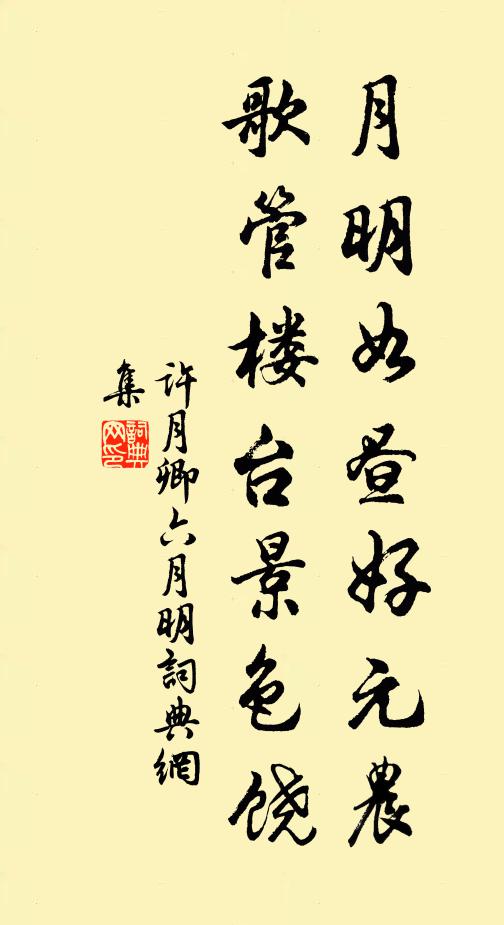 月明如昼好元農
歌管楼台景色饶
许月卿六月明詞典網
集
詞典
网印